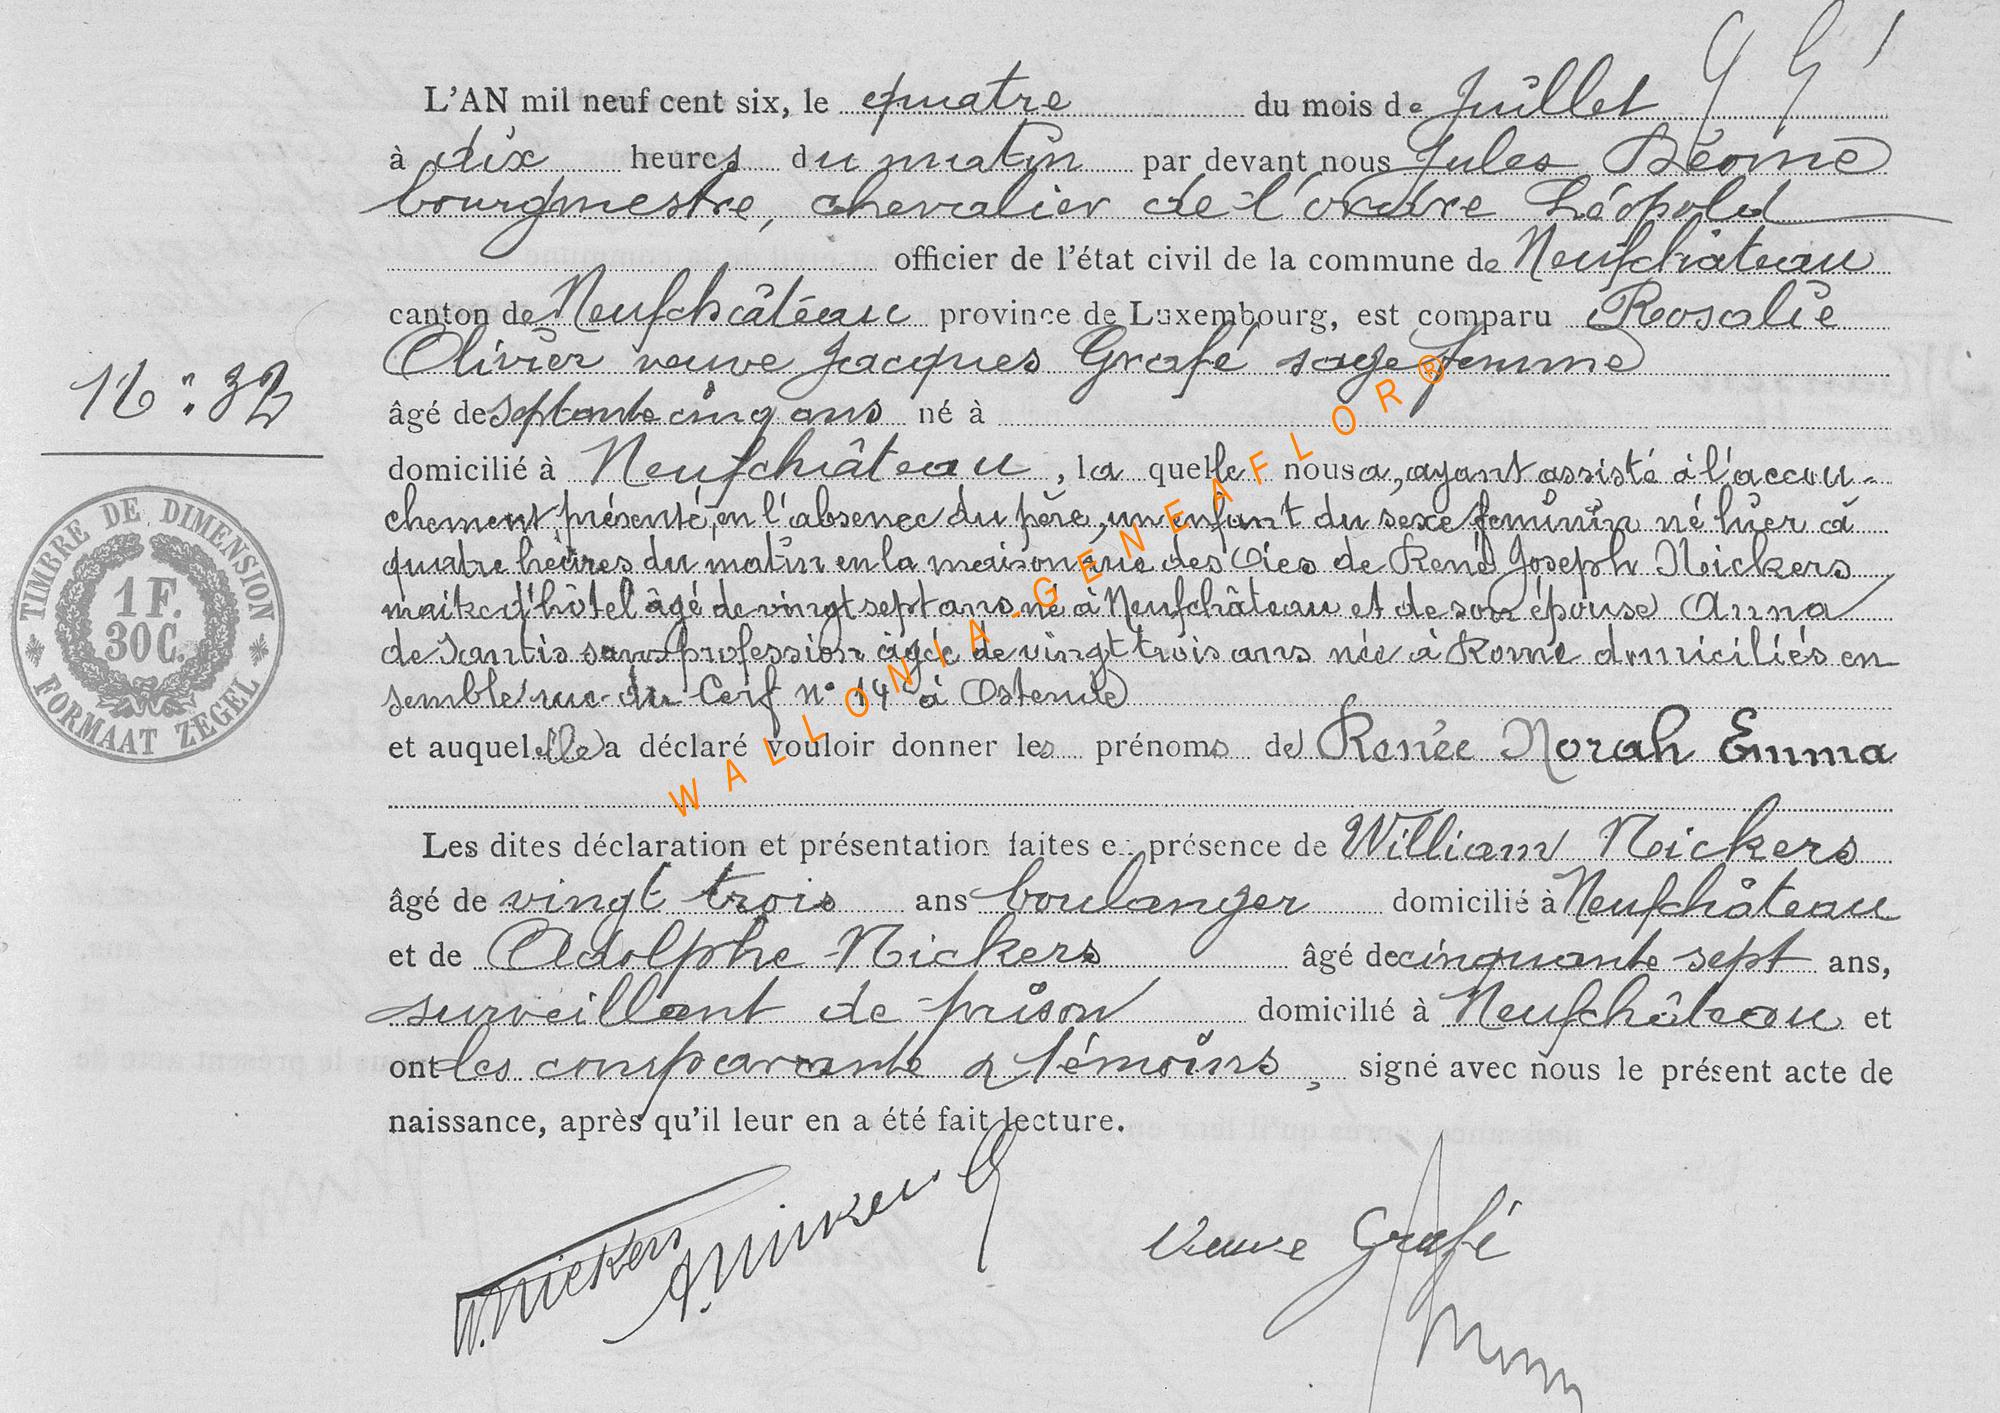 L'AN mil neuf cent six, le quatre du mois de Juillet
à dix heures du matin par devant nous Jules
bourgmestre, chevalier de l'ordre Léopold
officier de l'état civil de la commune de Neufchâteau
canton de Neufchâteau province de Luxembourg, est comparu Rosalie
Olivier veuve Jacques Grafé sage femme
N° 32
âgé de septante cinq ans né à
domicilié à Neufchâteau, la quelle nous a, ayant assisté à l'accou-
chement, présenté, en l'absence du père, un enfant du sexe féminin né hier à
quatre heures du matin en la maison rue des de René Joseph Nickers
maitre d'hôtel âgé de vingt sept ans né à Neufchâteau et de son épouse Anna
de Santis sans profession âgée de vingt trois ans née à Rome domiciliés en
semble rue du Cerf n° 14 à Ostende
et auquel elle a déclaré vouloir donner les prénoms de Renée Norah Emma
Les dites déclaration et présentation faites en présence de William Nickers
âgé de vingt trois ans boulanger domicilié à Neufchâteau
et de Adolphe Nickers âgé de cinquante sept ans,
surveillant de prison domicilié à Neufchâteau et
ont les comparante & témoins, signé avec nous le présent acte de
naissance, après qu'il leur en a été fait lecture.
W. Nickers
A. Nickers
Veuve Grafé
TIMBRE DE DIMENSION
1 F.
30 C.
FORMAAT ZEGEL
WALLONIA-GENEAFLOR®